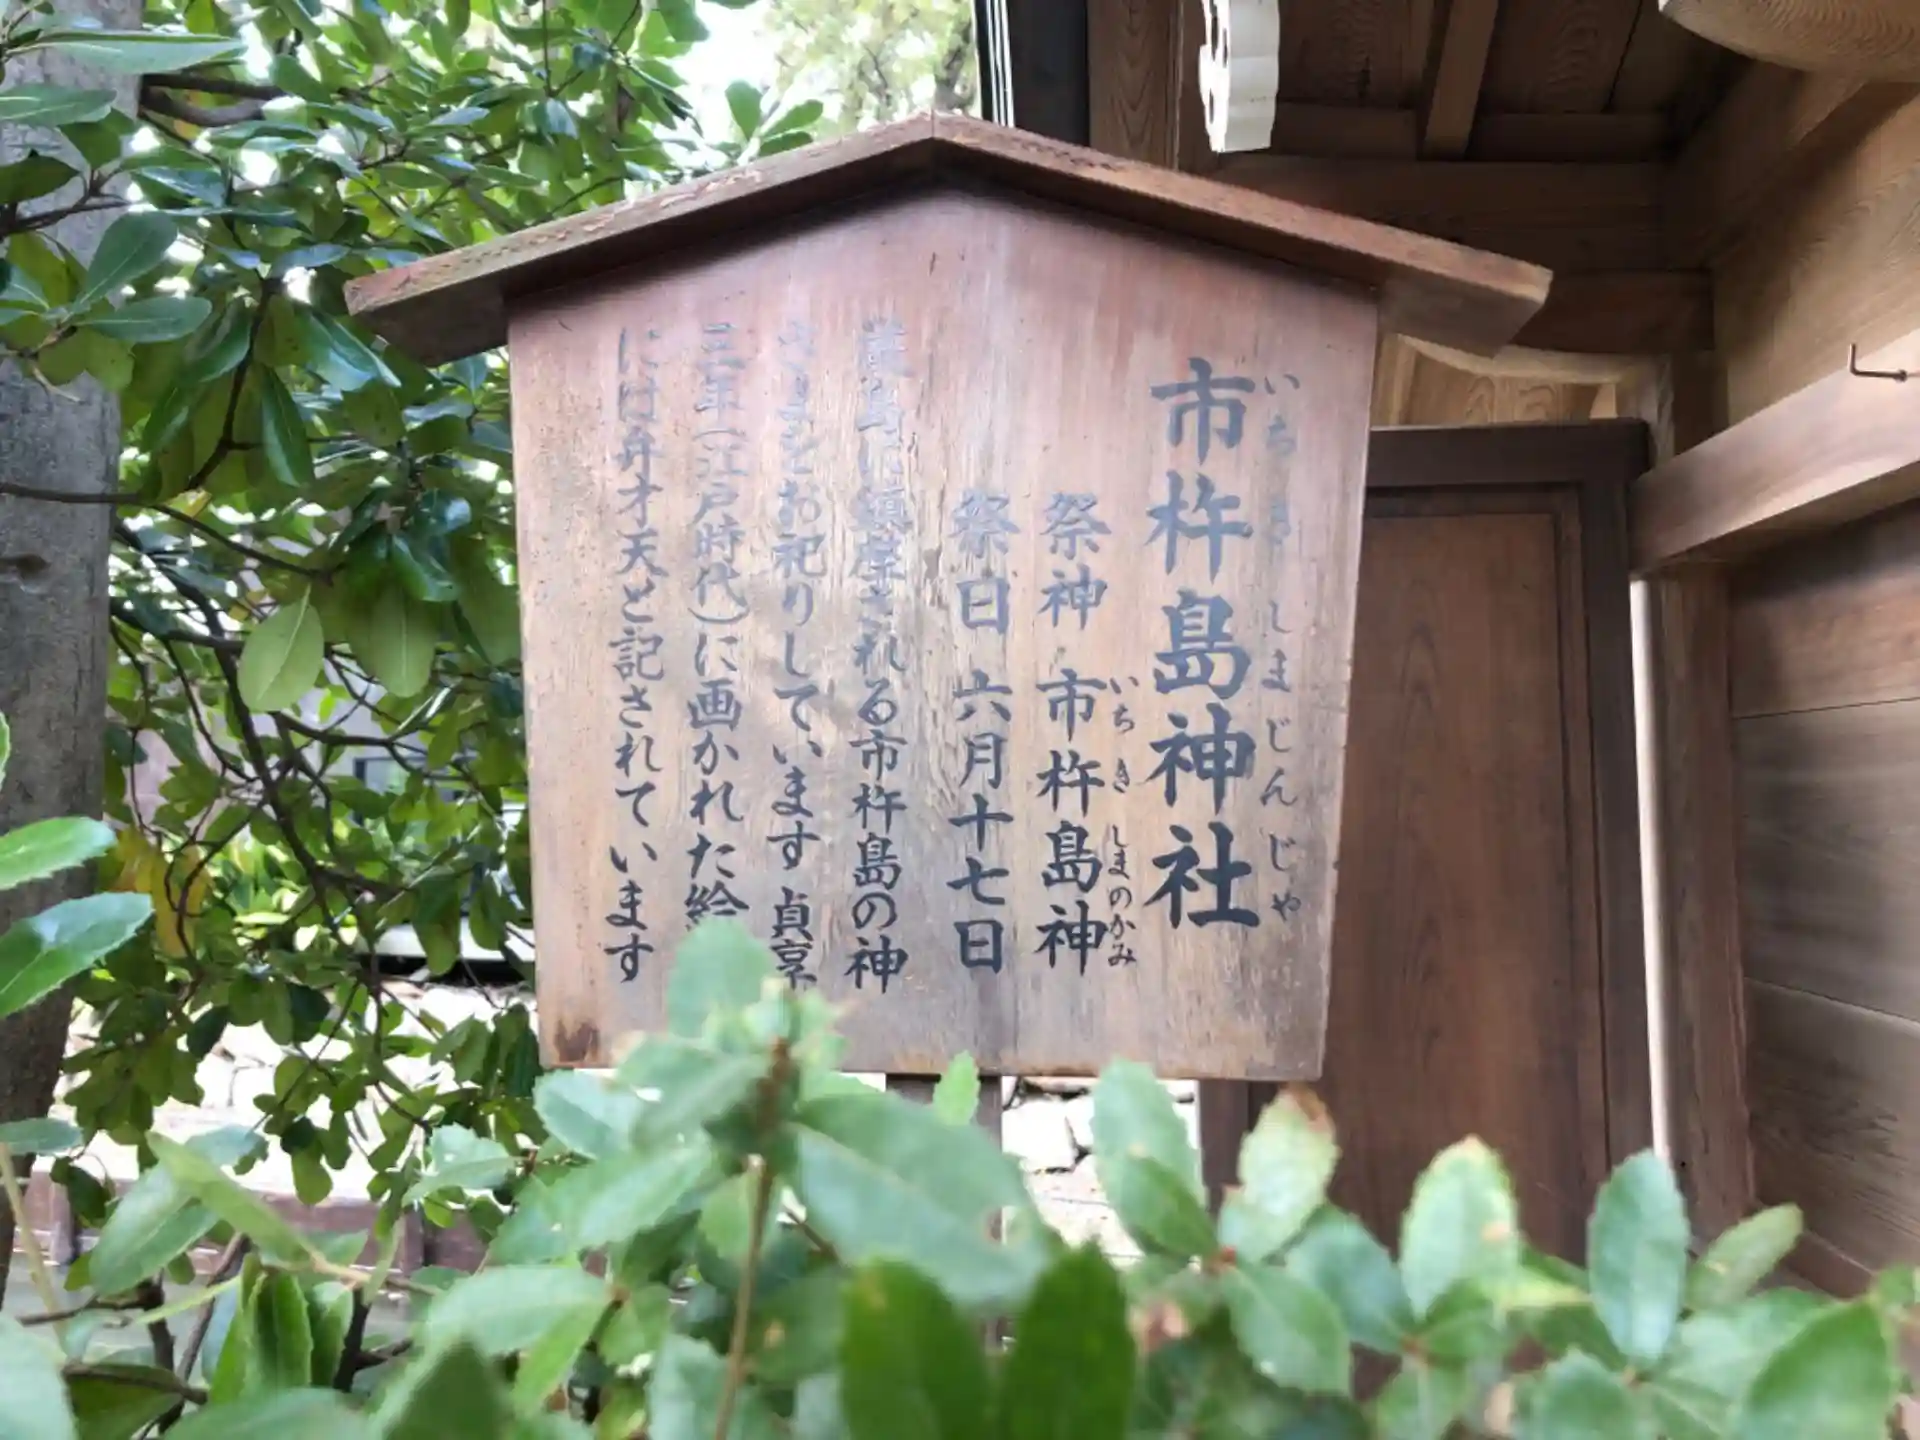 市杵島神社
いちきしまじんじゃ
祭神 市杵島神
いちきしまのかみ
祭日 六月十七日
厳島に鎮座される市杵島の神
さまをお祀りしています 貞享
三年(江戸時代)に画かれた絵
には弁才天と記されています